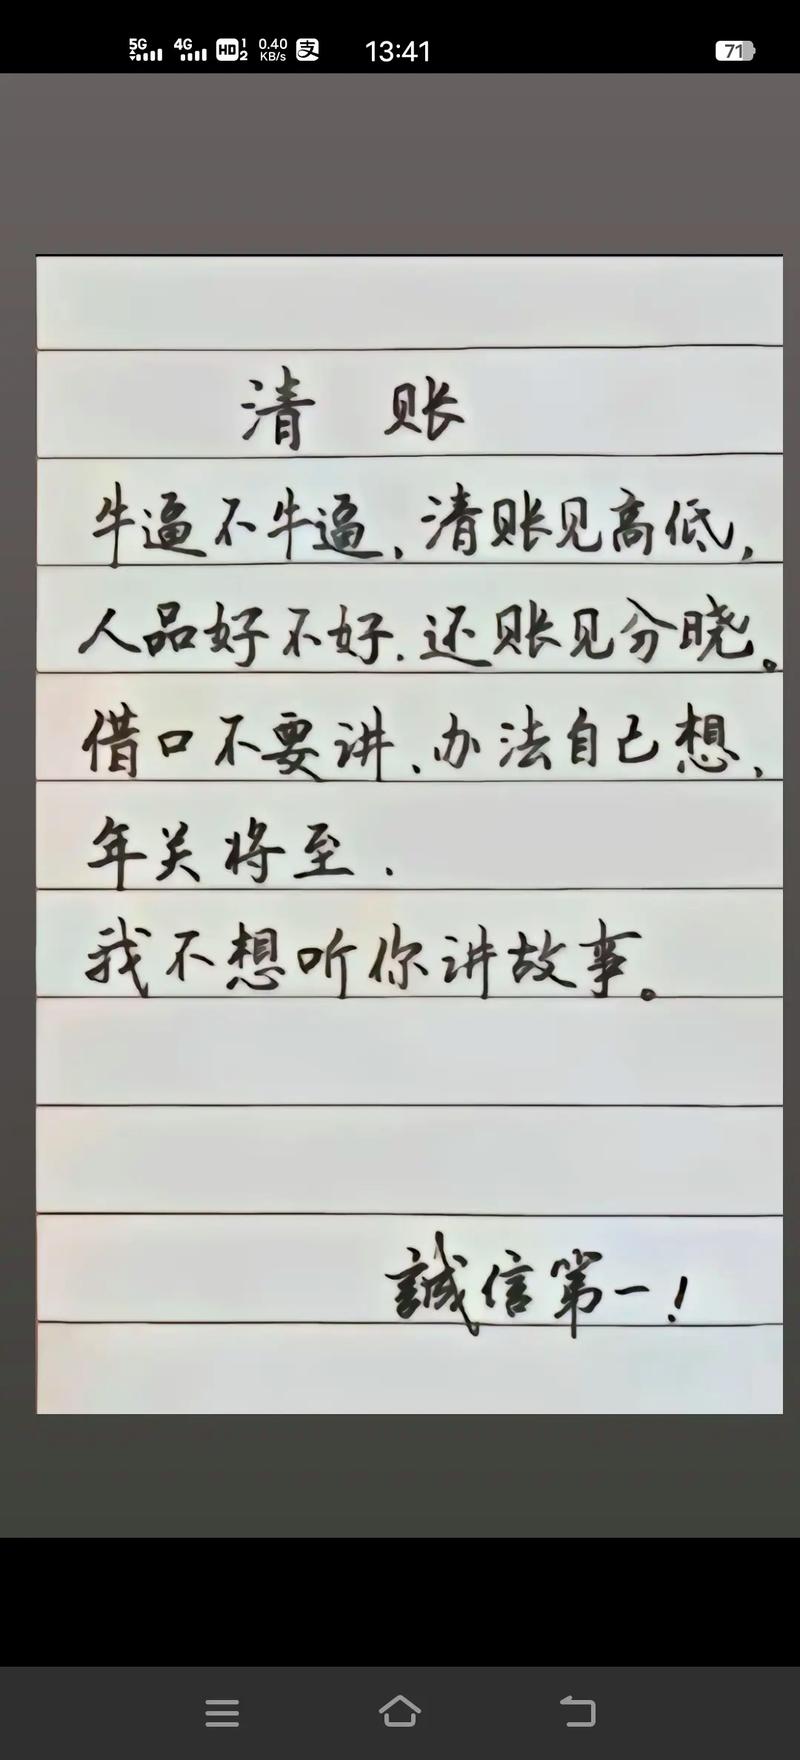 5G 4G HD 1 2 0.40 KB/s 支 13:41 71
清 账
牛逼不牛逼、清账见高低，
人品好不好、还账见分晓。
借口不要讲、办法自己想、
年关将至、
我不想听你讲故事。
誠信第一！